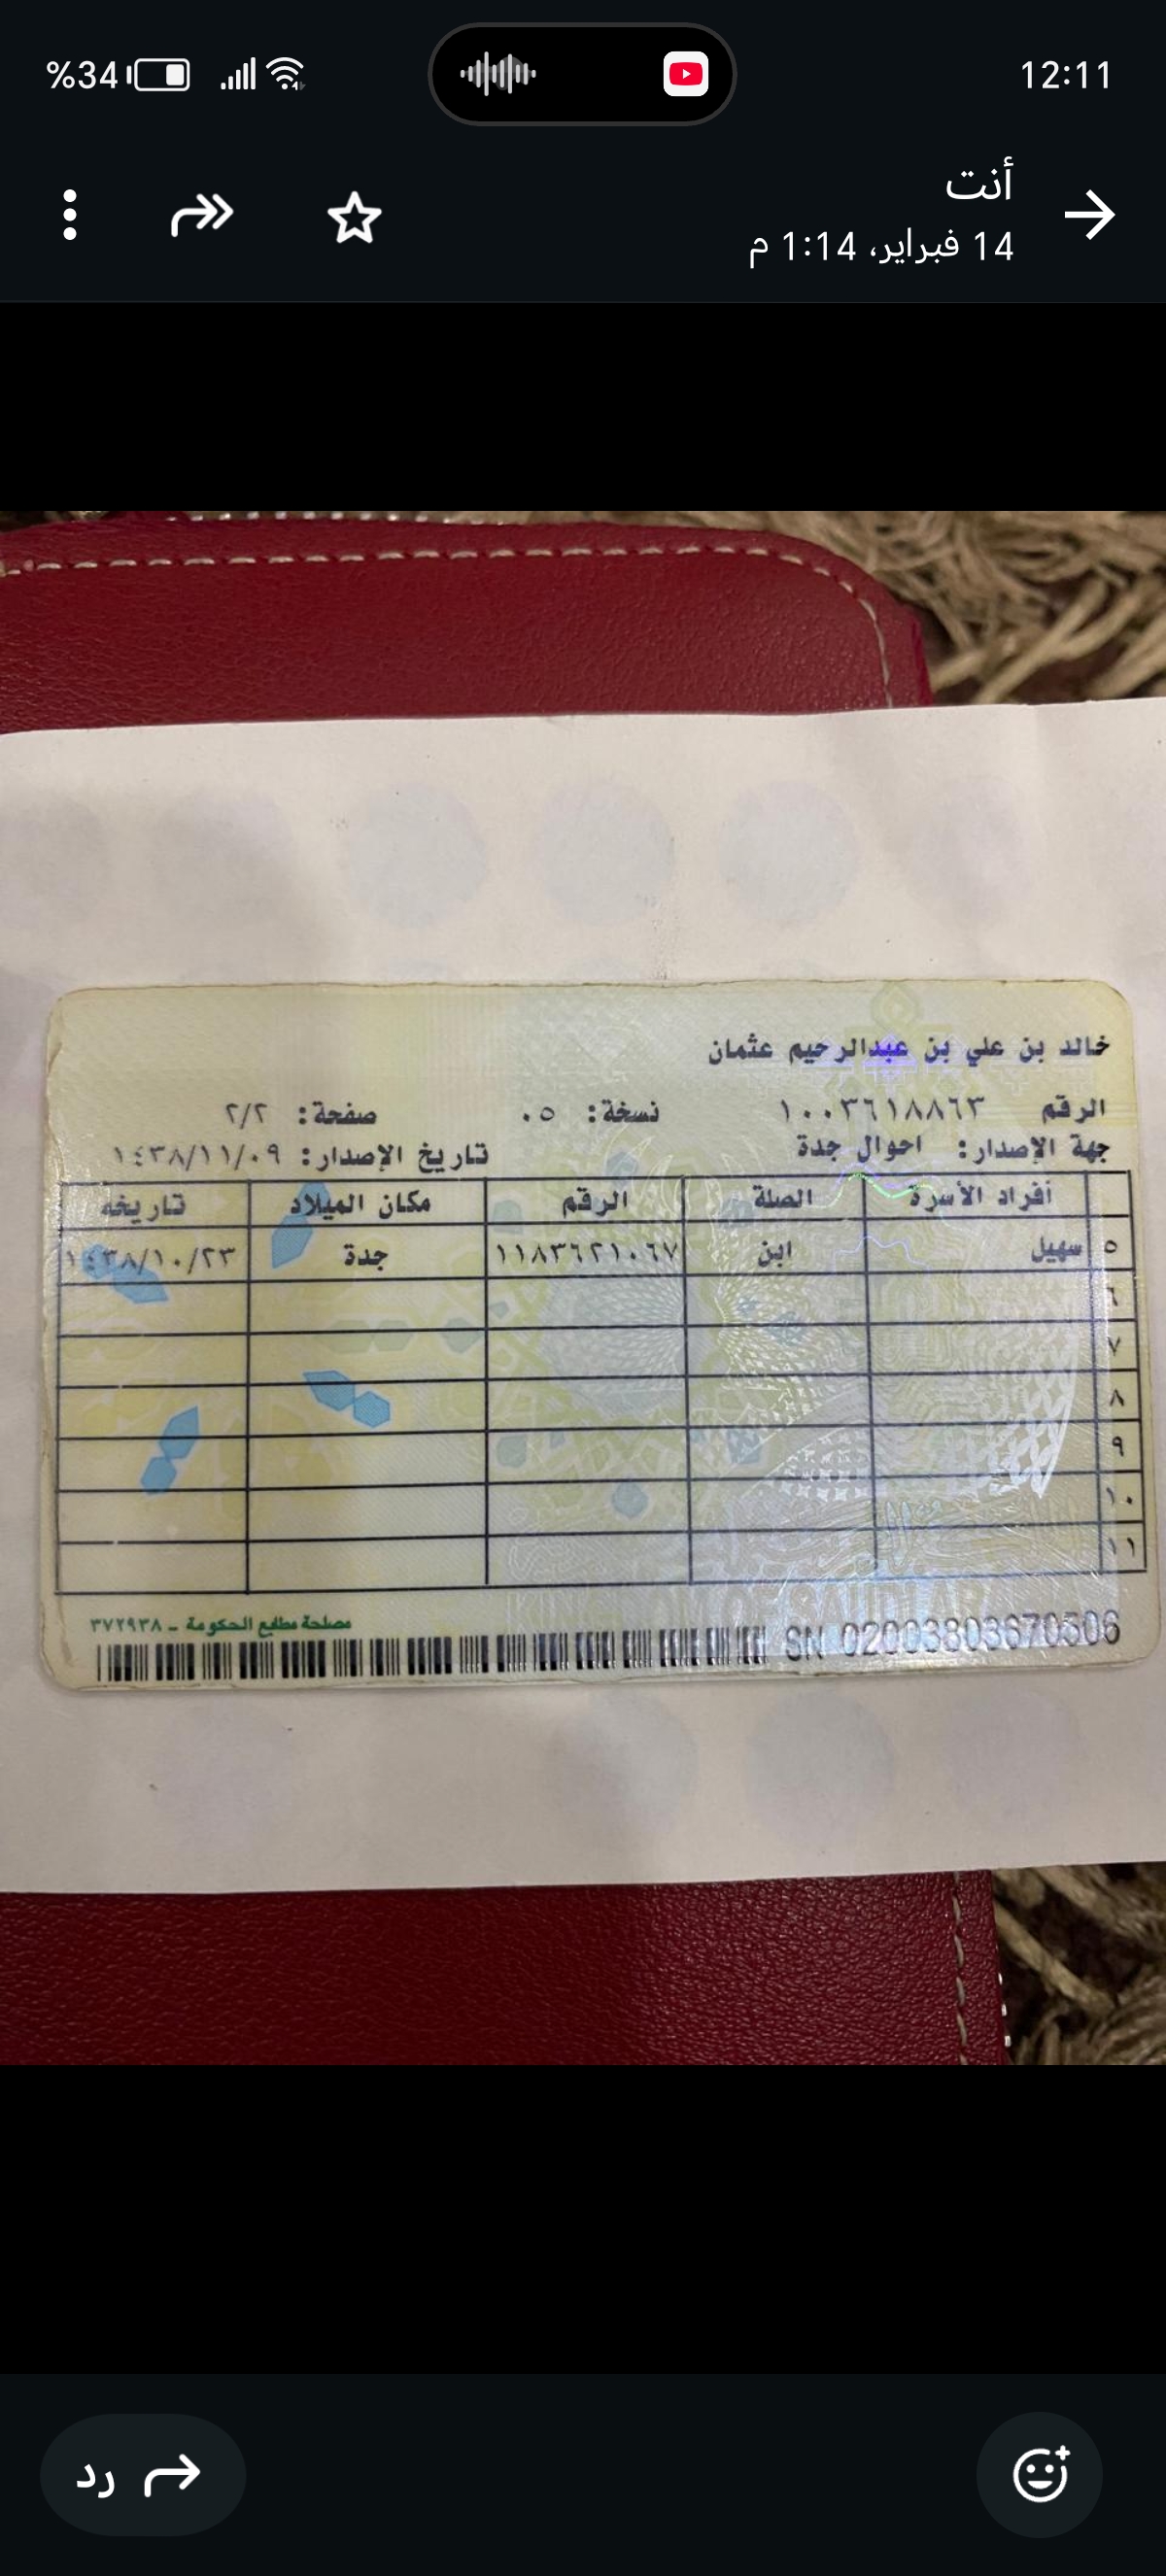 12:11
%34
أنت
14 فبراير، 1:14 م
خالد بن علي بن عبدالرحيم عثمان
الرقم ١٠٠٣٦١٨٨٦٣ نسخة: ٠٥ صفحة: ٢/٢
جهة الإصدار: احوال جدة تاريخ الإصدار: ١٤٣٨/١١/٠٩
أفراد الأسرة الصلة الرقم مكان الميلاد تاريخه
٥ سهيل ابن ١١٨٣٦٢١٠٦٧ جدة ١٤٣٨/١٠/٢٣
٦
٧
٨
٩
١٠
١١
مصلحة مطابع الحكومة - ٣٧٢٩٣٨
SN 02003803670506
رد